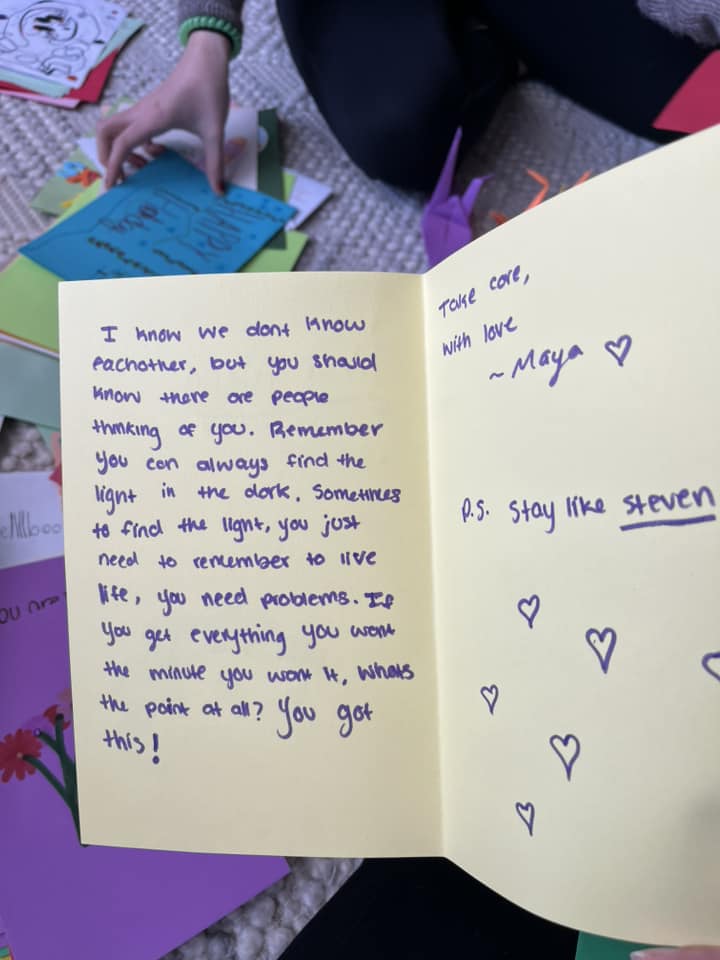 HAPPY
Friday
I know we dont know
eachother, but you should
know there are people
thinking of you. Remember
you can always find the
light in the dark. Sometimes
to find the light, you just
need to remember to live
life, you need problems. If
you get everything you want
the minute you want it, whats
the point at all? You got
this!
Take care,
with love
~ Maya ♡
P.S. Stay like steven